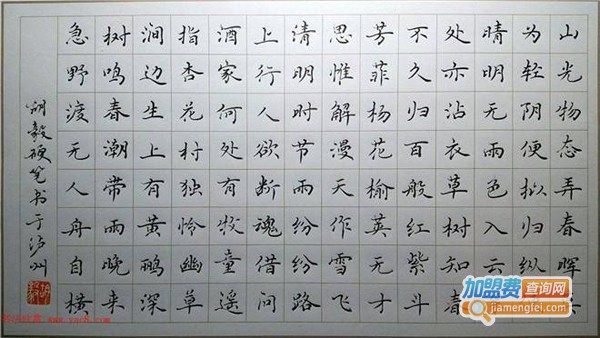 山光物态弄春晖
为轻阴便拟归纵
晴明无雨色入云
处亦沾衣草树知春
不久归百般红紫斗
芳菲杨花榆荚无才
思惟解漫天作雪飞
清明时节雨纷纷路
上行人欲断魂借问
酒家何处有牧童遥
指杏花村独怜幽草
涧边生上有黄鹂深
树鸣春潮带雨晚来
急野渡无人舟自横
毅硬笔书于泸州
加盟费查询网
jiamengfei.com